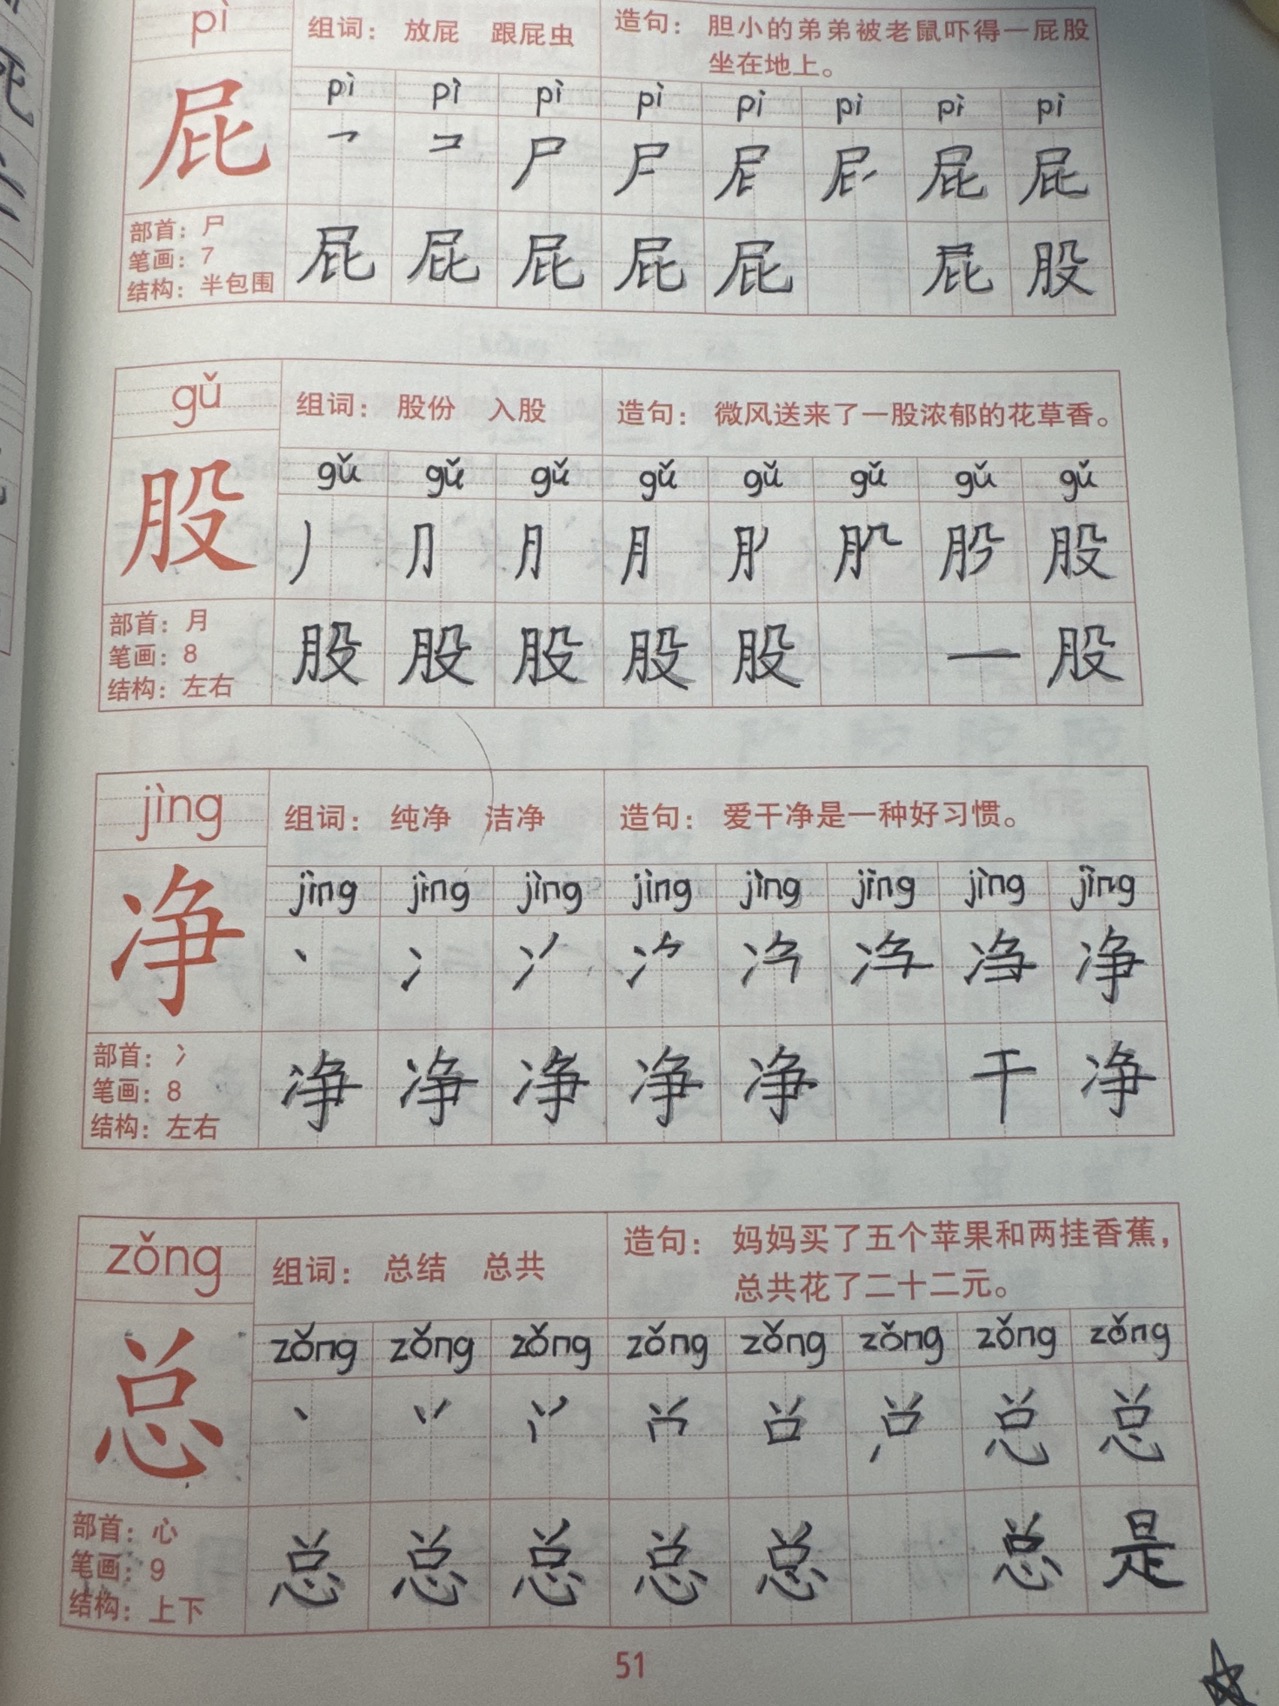 pì
组词： 放屁 跟屁虫
造句： 胆小的弟弟被老鼠吓得一屁股
坐在地上。
屁
pì pì pì pì pì pì pì pì
尸 屁 屁
部首：尸
笔画：7
结构：半包围
屁 屁 屁 屁 屁 屁 股
gǔ
组词： 股份 入股
造句： 微风送来了一股浓郁的花草香。
股
gǔ gǔ gǔ gǔ gǔ gǔ gǔ gǔ
丿 月 股
部首：月
笔画：8
结构：左右
股 股 股 股 股 一 股
jìng
组词： 纯净 洁净
造句： 爱干净是一种好习惯。
净
jìng jìng jìng jìng jìng jìng jìng jìng
丶 冫 净
部首：冫
笔画：8
结构：左右
净 净 净 净 净 干 净
zǒng
组词： 总结 总共
造句： 妈妈买了五个苹果和两挂香蕉，
总共花了二十二元。
总
zǒng zǒng zǒng zǒng zǒng zǒng zǒng zǒng
丶 丷 总
部首：心
笔画：9
结构：上下
总 总 总 总 总 总 是
51